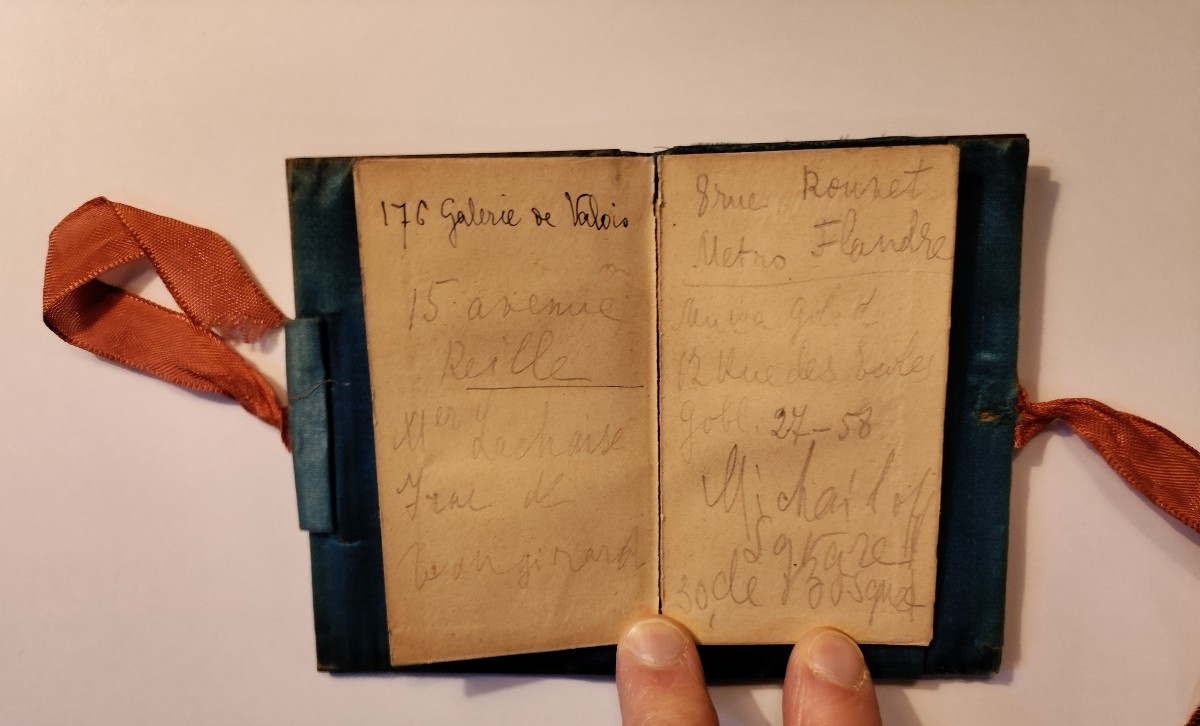 176 Galerie de Valois
15 avenue
Reille
Mer Lachaise
7 rue de
Vaugirard
8 rue Rouvet
Metro Flandre
12 Rue des Ecoles
Gobl. 27-58
Michailof
Square
30, de Bosque